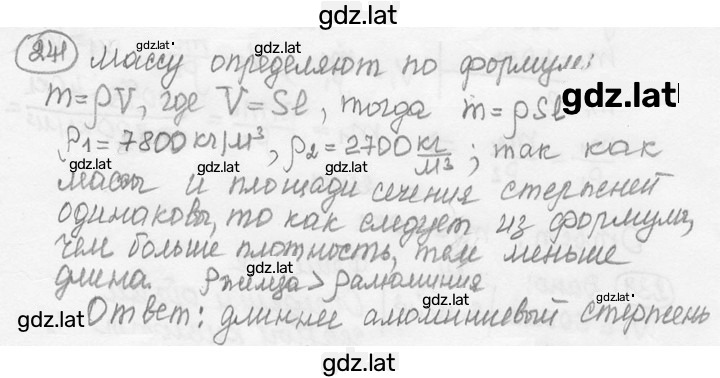 gdz.lat
241 Массу определяют по формуле:
m=ρV, где V=Sl, тогда m=ρSl
ρ1=7800кг/м³, ρ2=2700 кг/м³; так как
массы и площади сечения стерпеней
одинаковы, то как следует из формулы,
чем больше плотность, тем меньше
длина. ρжелеза>ρалюминия
Ответ: длиннее алюминиевый стерпень
gdz.lat
gdz.lat
gdz.lat
gdz.lat
gdz.lat
gdz.lat
gdz.lat
gdz.lat
gdz.lat
gdz.lat
gdz.lat
gdz.lat